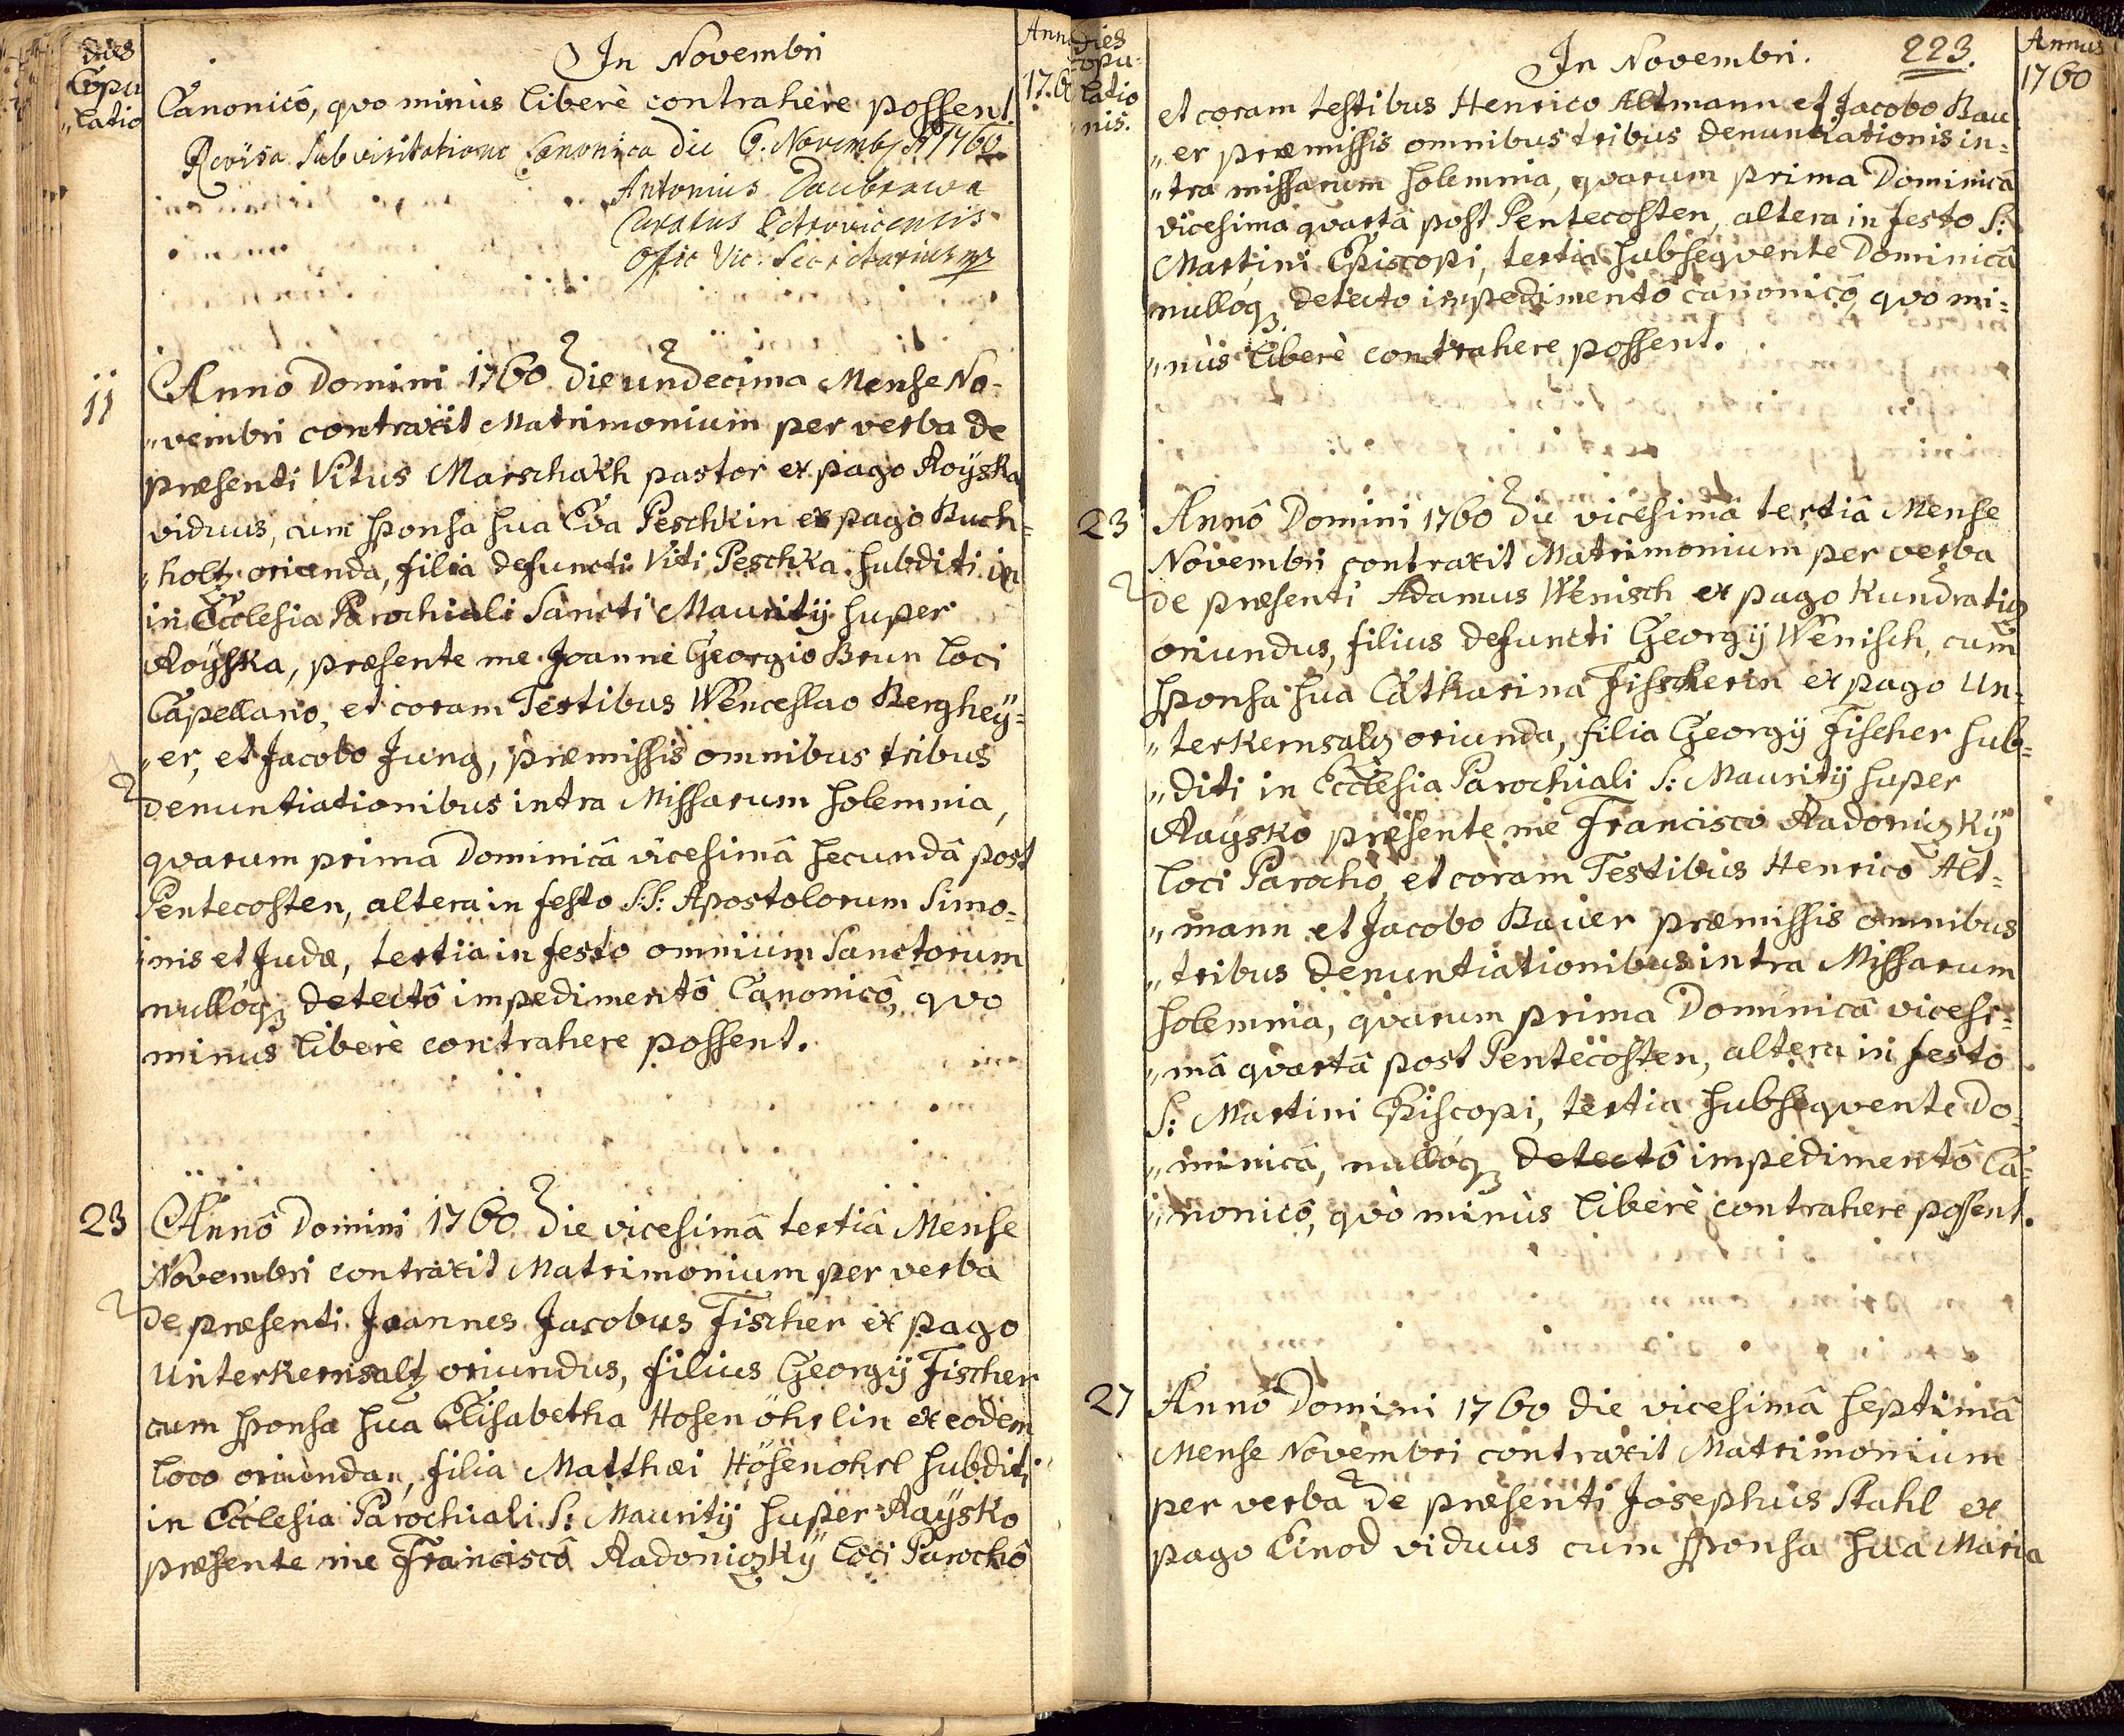 dies
Copu
„latio
In Novembri
Anno
17.6
Canonicô, quo minùs liberè contrahere possent.
Revisa sub visitatione Canonica die 6. Novembr A 1760
Antonius Daubrawa
Curatus
Offic Vic. Secretarius mp
11
Anno Domini 1760 die undecima Mense No-
„vembri contraxit Matrimonium per verba de
præsenti Vitus Marschakh pastor ex pago Royska
viduus, cum sponsa sua Eva Peschkin ex pago Buch=
„holtz orienda, filia defuncti Viti Peschka subditi in
in Ecclesia Parochiali Sancti Mauritÿ super
Royska, præsente me Joanne Georgio Brun loci
Capellano, et coram Testibus Wenceslao Berghey=
„er, et Jacobo Jung, præmissis omnibus tribus
denuntiationibus intra Missarum solemnia,
qvarum prima Dominicâ vicesimâ secundâ post
Pentecosten, altera in festo S:S: Apostolorum Simo=
„nis et Judæ, tertia in festo omnium Sanctorum
nullóq3 detectô impedimentô Canonicô, qvo
minus liberè contrahere possent.
23
Annô Domini 1760 die vicesimâ tertiâ Mense
Novembri contraxit Matrimonium per verba
de præsenti Joannes Jacobus Fischer ex pago
Unterkernsaltz oriundus, filius Georgÿ Fischer
cum sponsa sua Elisabetha Hosenöhrlin ex eodem
loco oriunda, filia Matthæi Hösenohrl subditi
in Ecclesia Parochiali S: Mauritÿ super Raysko
præsente me Franciscô Radonizkÿ loci Parochô
dies
copu-
latio
nis.
In Novembri.
223.
Annus
1760
et coram testibus Henrico Altmann et Jacobo Bau
„er præmissis omnibus tribus denuntiationis in=
„tra missarum solemnia, qvarum prima Dominicâ
vicesimâ qvartâ post Pentecosten, altera in festo S:
Martini Episcopi, tertia subseqvente Dominicâ
nullóq3 detecto impedimentô canonicô, qvo mi=
„nùs liberè contrahere possent.
23
Annô Domini 1760 die vicesimâ tertiâ Mense
Novembri contraxit Matrimonium per verba
de præsenti Adamus Wenisch ex pago Kundratiz
oriundus, filius defuncti Georgÿ Wenisch, cum
sponsa sua Catharina Fischerin ex pago Un=
„terkernsalz oriunda, filia Georgÿ Fischer sub=
„diti in Ecclesia Parochiali S: Mauritÿ super
Raysko præsente me Francisco Radonizkÿ
loci Parocho, et coram Testibus Henrico Alt=
„mann et Jacobo Bauer præmissis omnibus
„tribus denuntiationibus intra Missarum
solemnia, qvarum prima Dominicâ vicesi=
„mâ qvartâ post Pentecosten, altera in festo
S: Martini Episcopi, tertia subseqvente Do-
„minicâ, nullóq3 detectô impedimentô Ca=
„nonicô, qvò minùs liberè contrahere possent.
27
Annô Domini 1760 die vicesimâ septimâ
Mense Novembri contraxit Matrimonium
per verba de præsenti Josephus Stahl ex
pago Einod viduus cum sponsa sua Maria